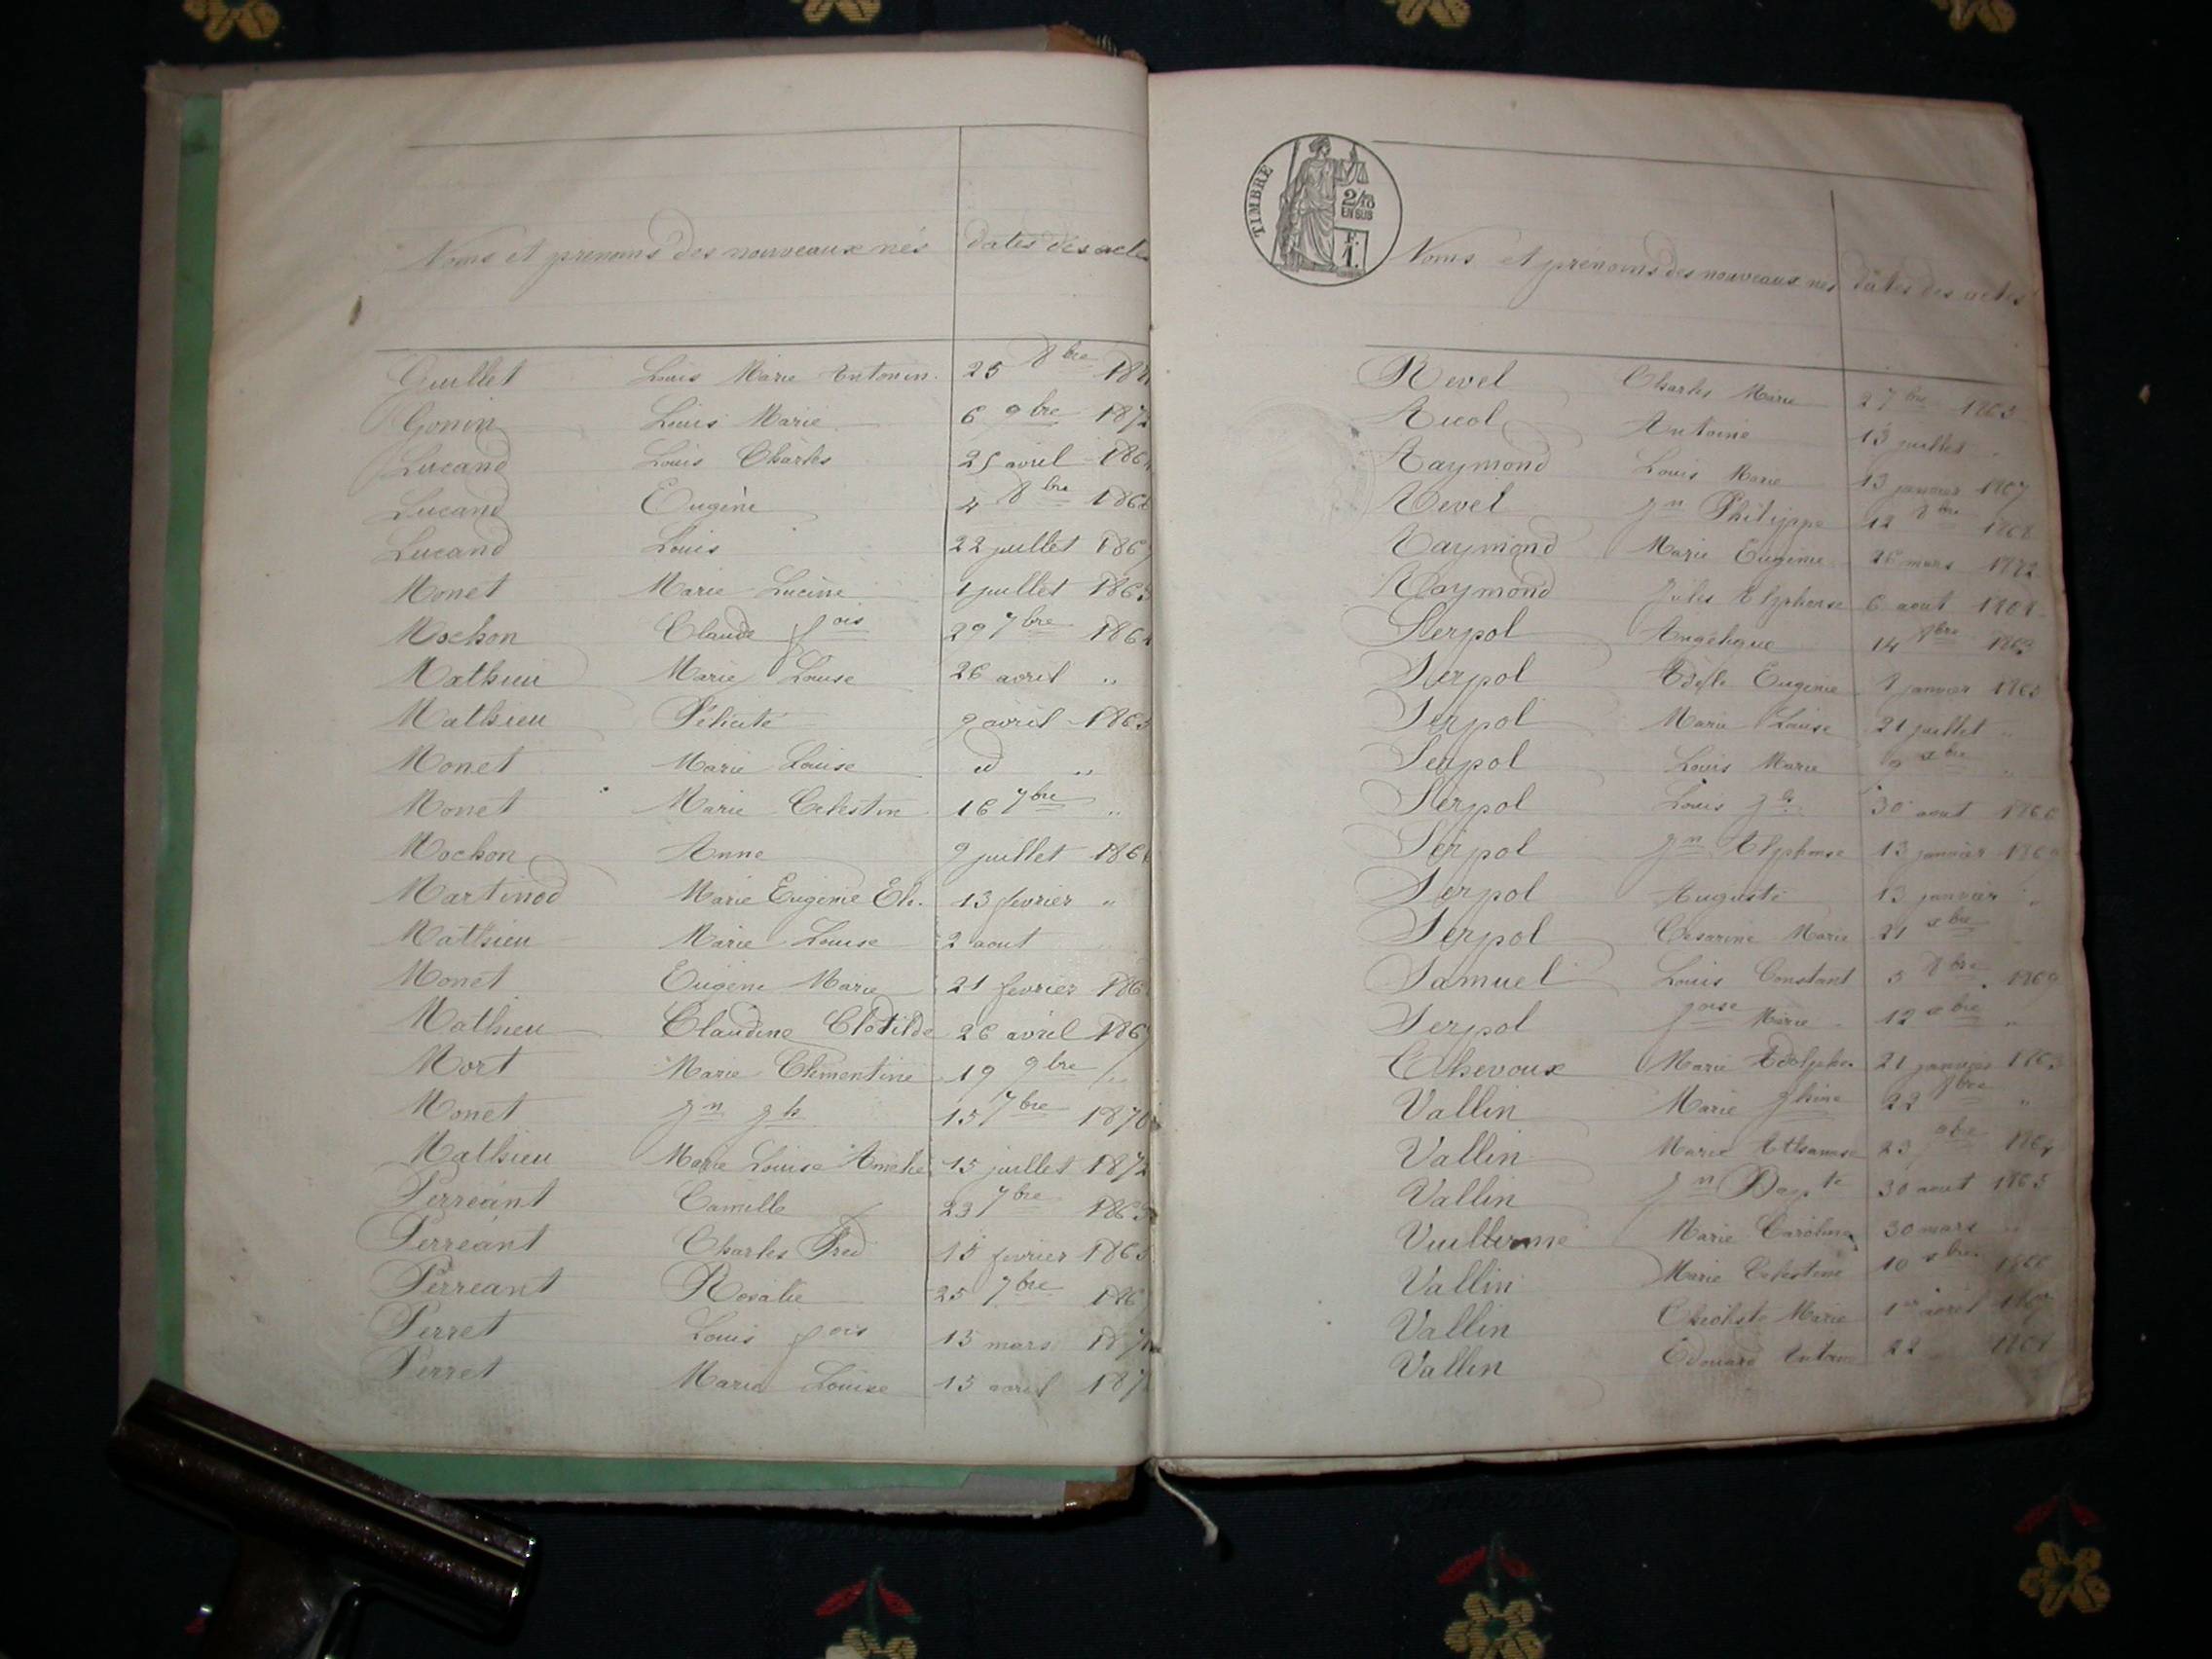 Noms et prenoms des nouveaux nés dates des actes
Guillet Louis Marie Antonin 25 8bre 187
Gonin Louis Marie 6 9bre 1872
Lucand Louis Charles 25 avril 186
Lucand Eugène 4 8bre 186
Lucand Louis 22 juillet 186
Monet Marie Lucine 1 juillet 1863
Mochon Claude fois 29 7bre 186
Mathieu Marie Louise 26 avril "
Mathieu Félicité 9 avril 1865
Monet Marie Louise d "
Monet Marie Celestin 16 7bre "
Mochon Anne 9 juillet 186
Martinod Marie Eugénie El. 13 fevrier "
Mathieu Marie Louise 2 aout
Monet Eugène Marie 21 fevrier 186
Mathieu Claudine Clotilde 26 avril 186
Mort Marie Clementine 19 9bre "
Monet jn jh 15 7bre 1870
Mathieu Marie Louise Amelie 15 juillet 1872
Perreant Camille 23 7bre 1863
Perréant Charles Fred 15 fevrier 1865
Perreant Rosalie 25 7bre 186
Perret Louis fois 15 mars 187
Perret Marie Louise 15 avril 187
TIMBRE
2/10
EN SUS
F.
1.
Noms et prenoms des nouveaux nés dates des actes
Revel Charles Marie 2 7bre 1863
Ricol Antoine 13 juillet
Raymond Louis Marie 13 janvier 1867
Revel jn Philippe 12 8bre 1868
Raymond Marie Eugénie 26 mars 1872
Raymond Jules Alphonse 6 aout 1868
Serpol Angélique 14 8bre 1863
Serpol Adèle Eugénie 8 janvier 1865
Serpol Marie Louise 21 juillet "
Serpol Louis Marie 9 xbre "
Serpol Louis jh 30 aout 1866
Serpol jn Alphonse 13 janvier 1869
Serpol Auguste 13 janvier "
Serpol Césarine Marie 21 xbre
Samuel Louis Constant 5 8bre 1869
Serpol foise Marie 12 xbre "
Thevoux Marie Adolphe 21 janvier 1863
Vallin Marie jhine 22 8bre "
Vallin Marie 23 9bre 1864
Vallin jn Bapte 30 aout 1865
Vuillerme Marie Caroline 30 mars "
Vallin Marie Celestine 10 xbre 1866
Vallin Marie 1er avril 1867
Vallin Edouard Antoine 22 1868